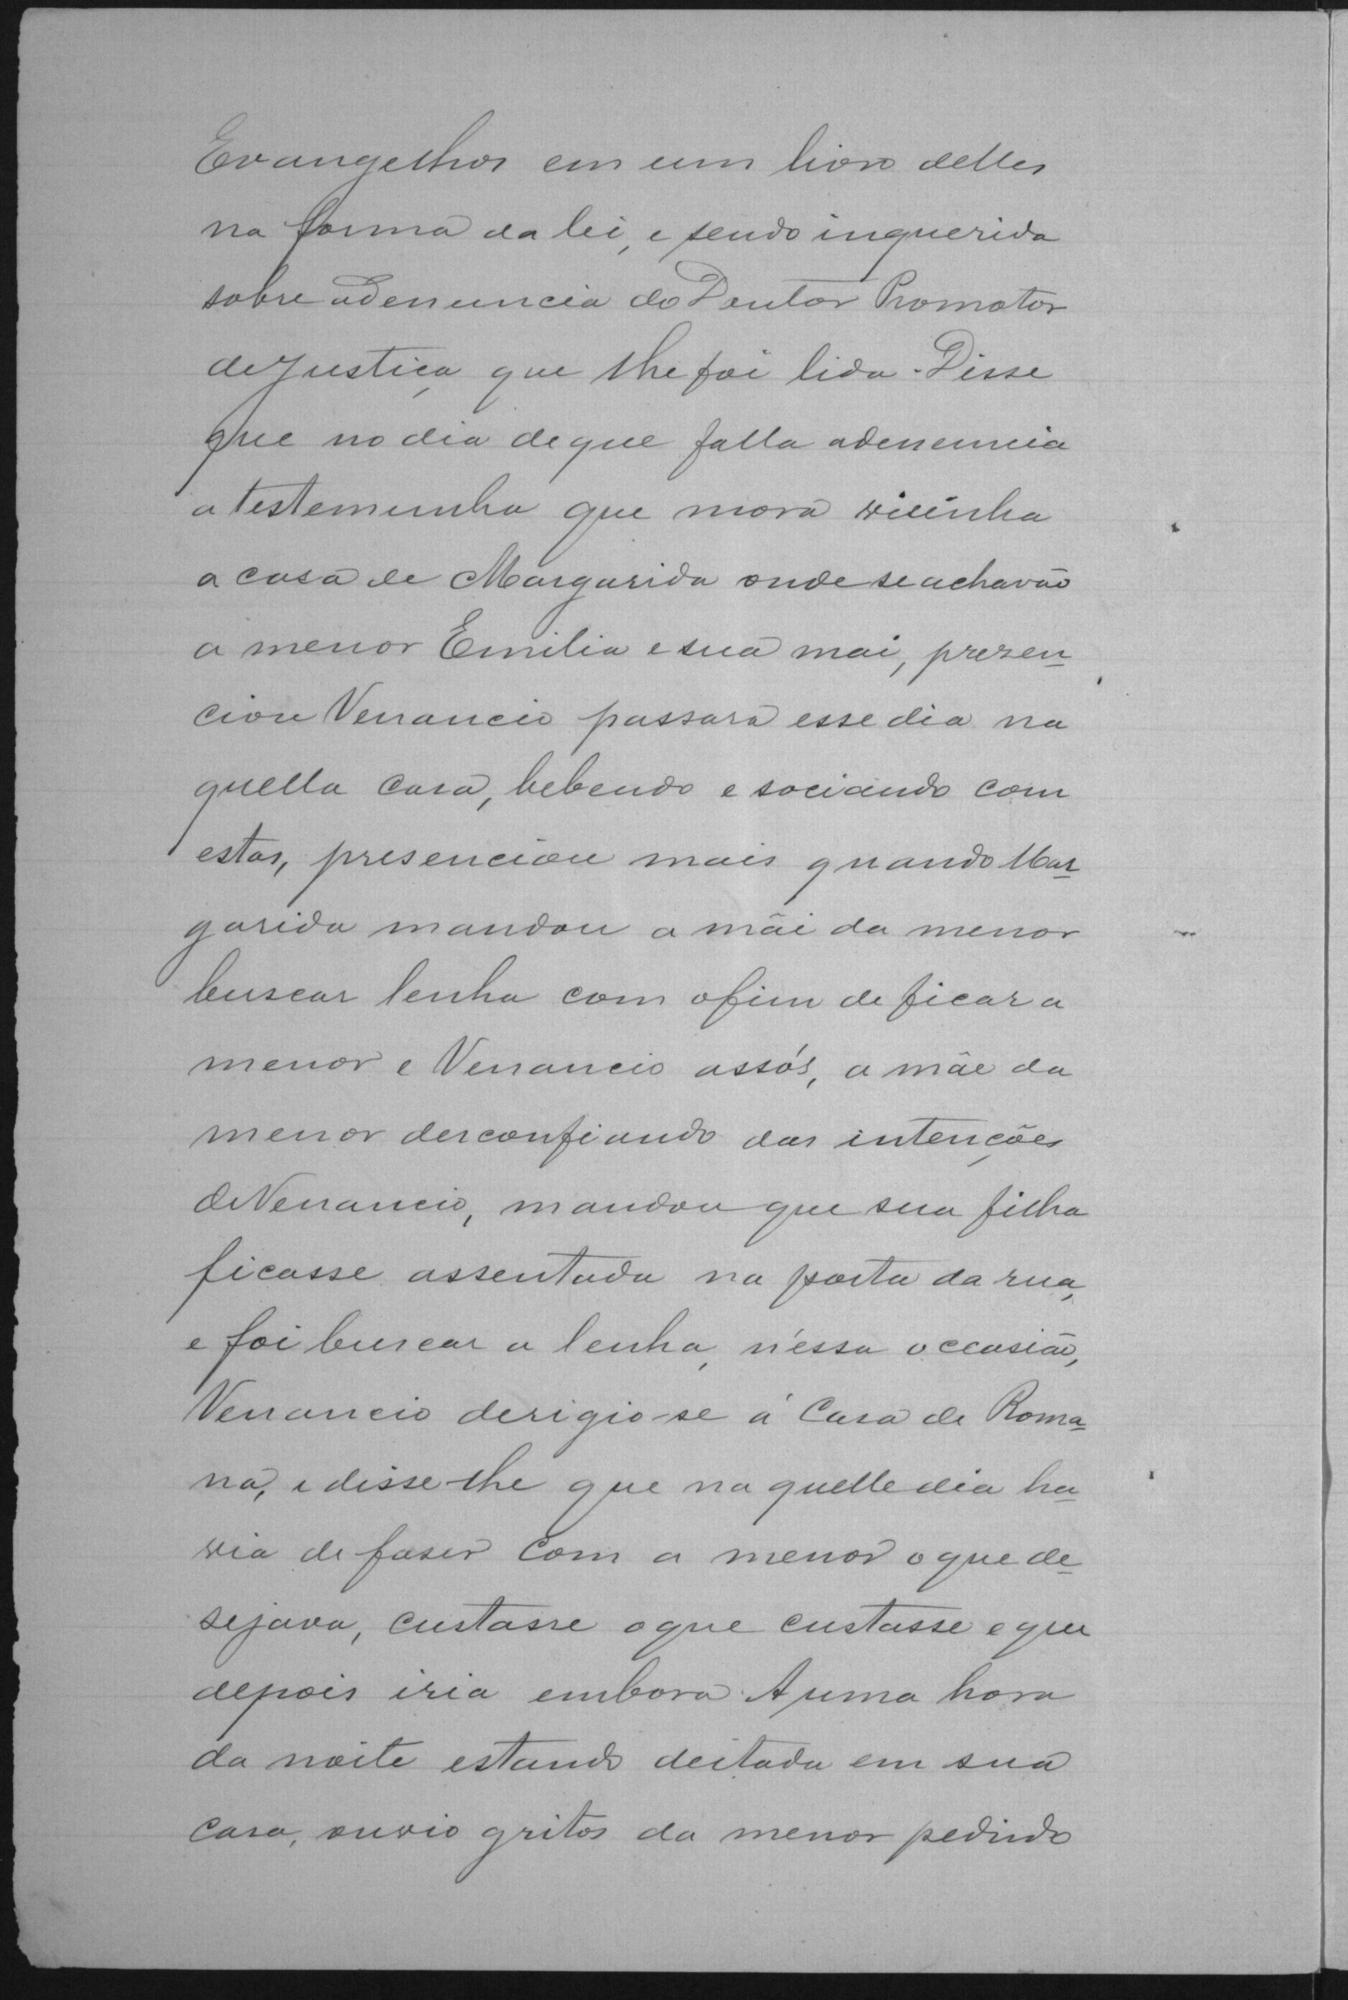 Evangelhos em um livro delles
na forma da lei, e sendo inquerida
sobre a denuncia do Doutor Promotor
de Justiça que lhe foi lida. Disse
que no dia de que falla a denuncia
a testemunha que mora visinha
a casa de Margarida onde se achavão
a menor Emilia e sua mai, prezen-
ciou Venancio passara esse dia na
quella casa, bebendo e sociando com
estas, presenciou mais quando Mar-
garida mandou a mãi da menor
buscar lenha com o fim de ficar a
menor e Venancio assós, a mãe da
menor desconfiando das intenções
de Venancio, mandou que sua filha
ficasse assentada na porta da rua,
e foi buscar a lenha, n'essa occasião,
Venancio derigio-se á Casa de Roma-
na, e disse-lhe que naquelle dia ha-
via de faser com a menor o que de-
sejava, custasse o que custasse e que
depois iria embora. A uma hora
da noite estando deitada em sua
casa, ouvio gritos da menor pedindo